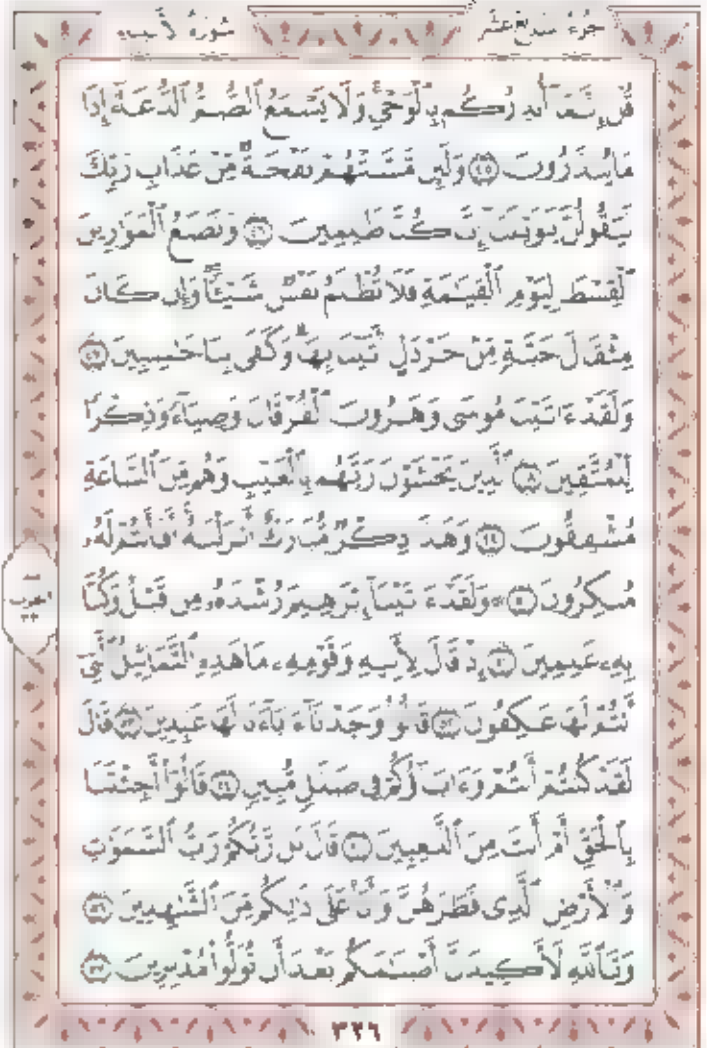 جزء سابع عشر سورة الأنبياء
قُلْ إِنَّمَآ أُنذِرُكُم بِٱلْوَحْىِ ۚ وَلَا يَسْمَعُ ٱلصُّمُّ ٱلدُّعَآءَ إِذَا
مَا يُنذَرُونَ ٤٥ وَلَئِن مَّسَّتْهُمْ نَفْحَةٌ مِّنْ عَذَابِ رَبِّكَ
لَيَقُولُنَّ يَٰوَيْلَنَآ إِنَّا كُنَّا ظَٰلِمِينَ ٤٦ وَنَضَعُ ٱلْمَوَٰزِينَ
ٱلْقِسْطَ لِيَوْمِ ٱلْقِيَٰمَةِ فَلَا تُظْلَمُ نَفْسٌ شَيْـًٔا ۖ وَإِن كَانَ
مِثْقَالَ حَبَّةٍ مِّنْ خَرْدَلٍ أَتَيْنَا بِهَا ۗ وَكَفَىٰ بِنَا حَٰسِبِينَ ٤٧
وَلَقَدْ ءَاتَيْنَا مُوسَىٰ وَهَٰرُونَ ٱلْفُرْقَانَ وَضِيَآءً وَذِكْرًا
لِّلْمُتَّقِينَ ٤٨ ٱلَّذِينَ يَخْشَوْنَ رَبَّهُم بِٱلْغَيْبِ وَهُم مِّنَ ٱلسَّاعَةِ
مُشْفِقُونَ ٤٩ وَهَٰذَا ذِكْرٌ مُّبَارَكٌ أَنزَلْنَٰهُ ۚ أَفَأَنتُمْ لَهُۥ
مُنكِرُونَ ٥٠ ۞ وَلَقَدْ ءَاتَيْنَآ إِبْرَٰهِيمَ رُشْدَهُۥ مِن قَبْلُ وَكُنَّا
بِهِۦ عَٰلِمِينَ ٥١ إِذْ قَالَ لِأَبِيهِ وَقَوْمِهِۦ مَا هَٰذِهِ ٱلتَّمَاثِيلُ ٱلَّتِىٓ
أَنتُمْ لَهَا عَٰكِفُونَ ٥٢ قَالُوا۟ وَجَدْنَآ ءَابَآءَنَا لَهَا عَٰبِدِينَ ٥٣ قَالَ
لَقَدْ كُنتُمْ أَنتُمْ وَءَابَآؤُكُمْ فِى ضَلَٰلٍ مُّبِينٍ ٥٤ قَالُوٓا۟ أَجِئْتَنَا
بِٱلْحَقِّ أَمْ أَنتَ مِنَ ٱللَّٰعِبِينَ ٥٥ قَالَ بَل رَّبُّكُمْ رَبُّ ٱلسَّمَٰوَٰتِ
وَٱلْأَرْضِ ٱلَّذِى فَطَرَهُنَّ وَأَنَا۠ عَلَىٰ ذَٰلِكُم مِّنَ ٱلشَّٰهِدِينَ ٥٦
وَتَٱللَّهِ لَأَكِيدَنَّ أَصْنَٰمَكُم بَعْدَ أَن تُوَلُّوا۟ مُدْبِرِينَ ٥٧
٣٢٦